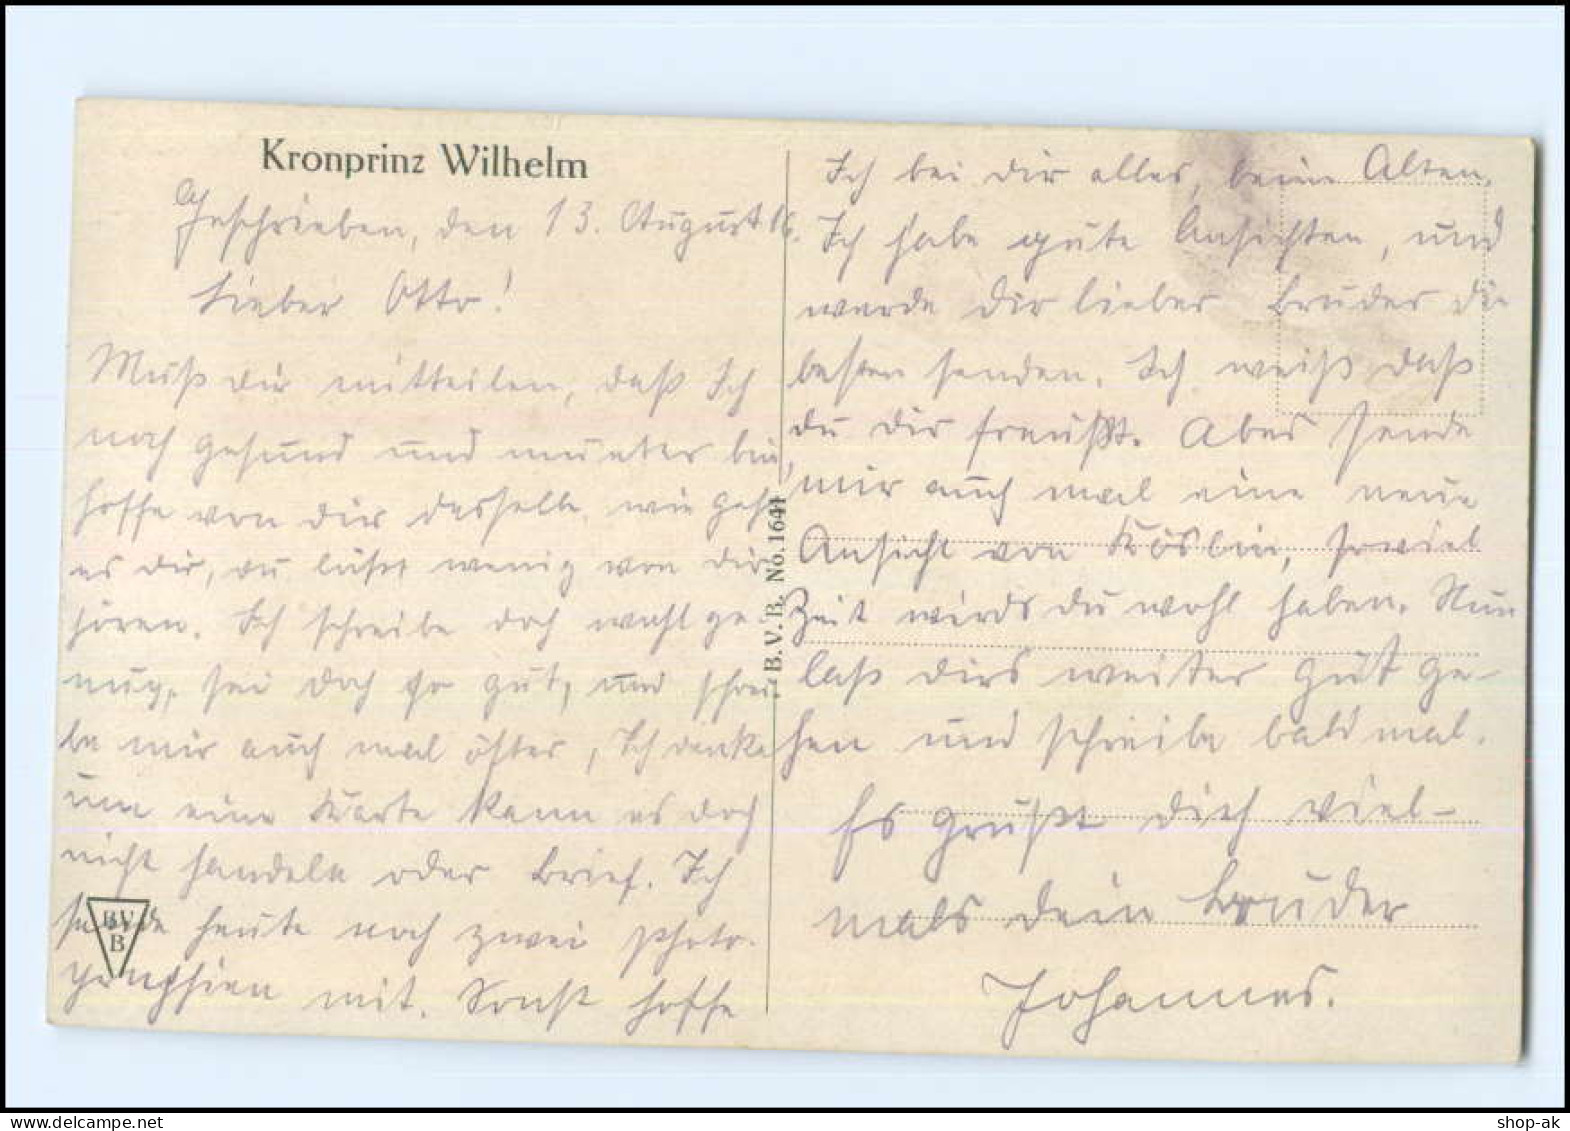 Kronprinz Wilhelm
Geschrieben, den 13. August 16.
Lieber Otto!
Muß dir mitteilen, daß Ich
noch gesund und munter bin,
hoffe von dir dasselbe, wie geht
es dir, du läßt wenig von dir
hören. Ich schreibe doch wohl ge-
nug, sei doch so gut, und schrei-
be mir auch mal öfter, Ich denke
um eine Karte kann es doch
nicht handeln oder Brief. Ich
sende heute noch zwei Photo-
graphien mit. Sonst hoffe
BV
B
B.V.B. No. 1641
Ich bei dir alles, beim Alten.
Ich habe gute Ansichten, und
werde dir lieber Bruder die
besten senden. Ich weiß daß
du dir freußt. Aber sende
mir auch mal eine neue
Ansicht von Köslin, soviel
Zeit wirds du wohl haben. Nun
laß dirs weiter gut ge-
hen und schreibe bald mal.
Es grüßt dich viel-
mals dein Bruder
Johannes.
shop-ak